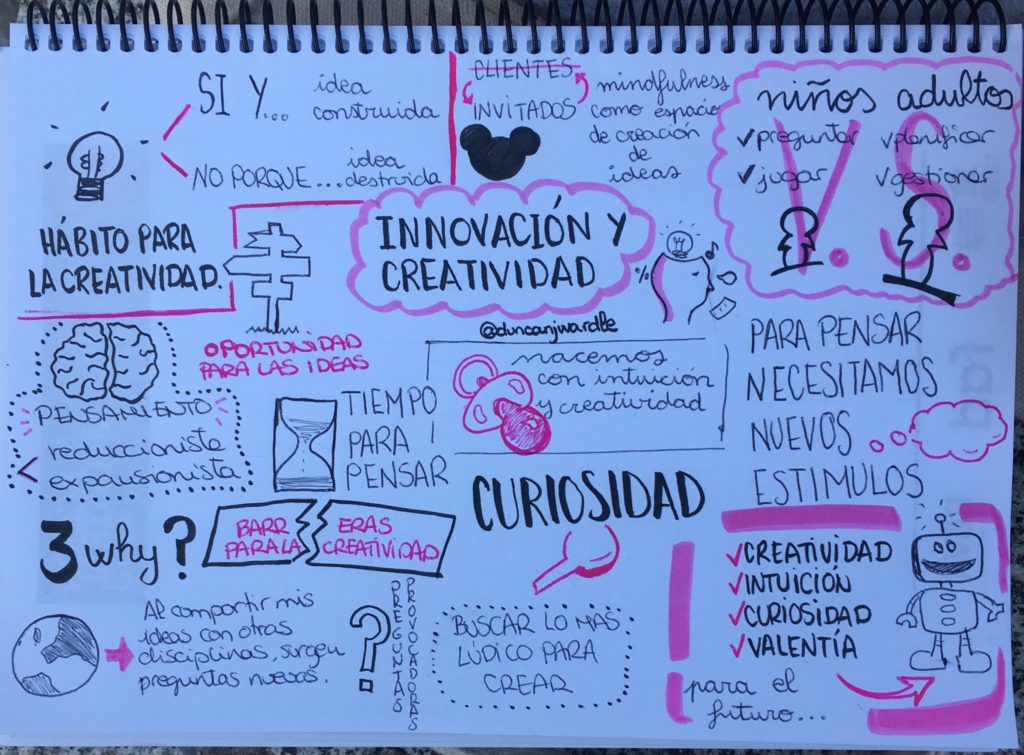 SI Y... idea
construida
NO PORQUE... idea
destruida
HÁBITO PARA
LA CREATIVIDAD.
CLIENTES
INVITADOS
mindfulness
como espacio
de creación
de
ideas
niños adultos
V.S.
✓preguntar ✓planificar
✓jugar ✓gestionar
INNOVACIÓN Y
CREATIVIDAD
@duncanjwardle
%
OPORTUNIDAD
PARA LAS IDEAS
PENSAMIENTO
reduccionista
< expansionista
TIEMPO
PARA
PENSAR
nacemos
con intuición
y creatividad
PARA PENSAR
NECESITAMOS
NUEVOS
ESTIMULOS
3 why?
BARRERAS
PARA LA CREATIVIDAD
CURIOSIDAD
Al compartir mis
ideas con otras
disciplinas, surgen
preguntas nuevas.
?
PREGUNTAS
PROVOCADORAS
BUSCAR LO MAS
LÚDICO PARA
CREAR
✓CREATIVIDAD
✓INTUICIÓN
✓CURIOSIDAD
✓VALENTÍA
para el
futuro...